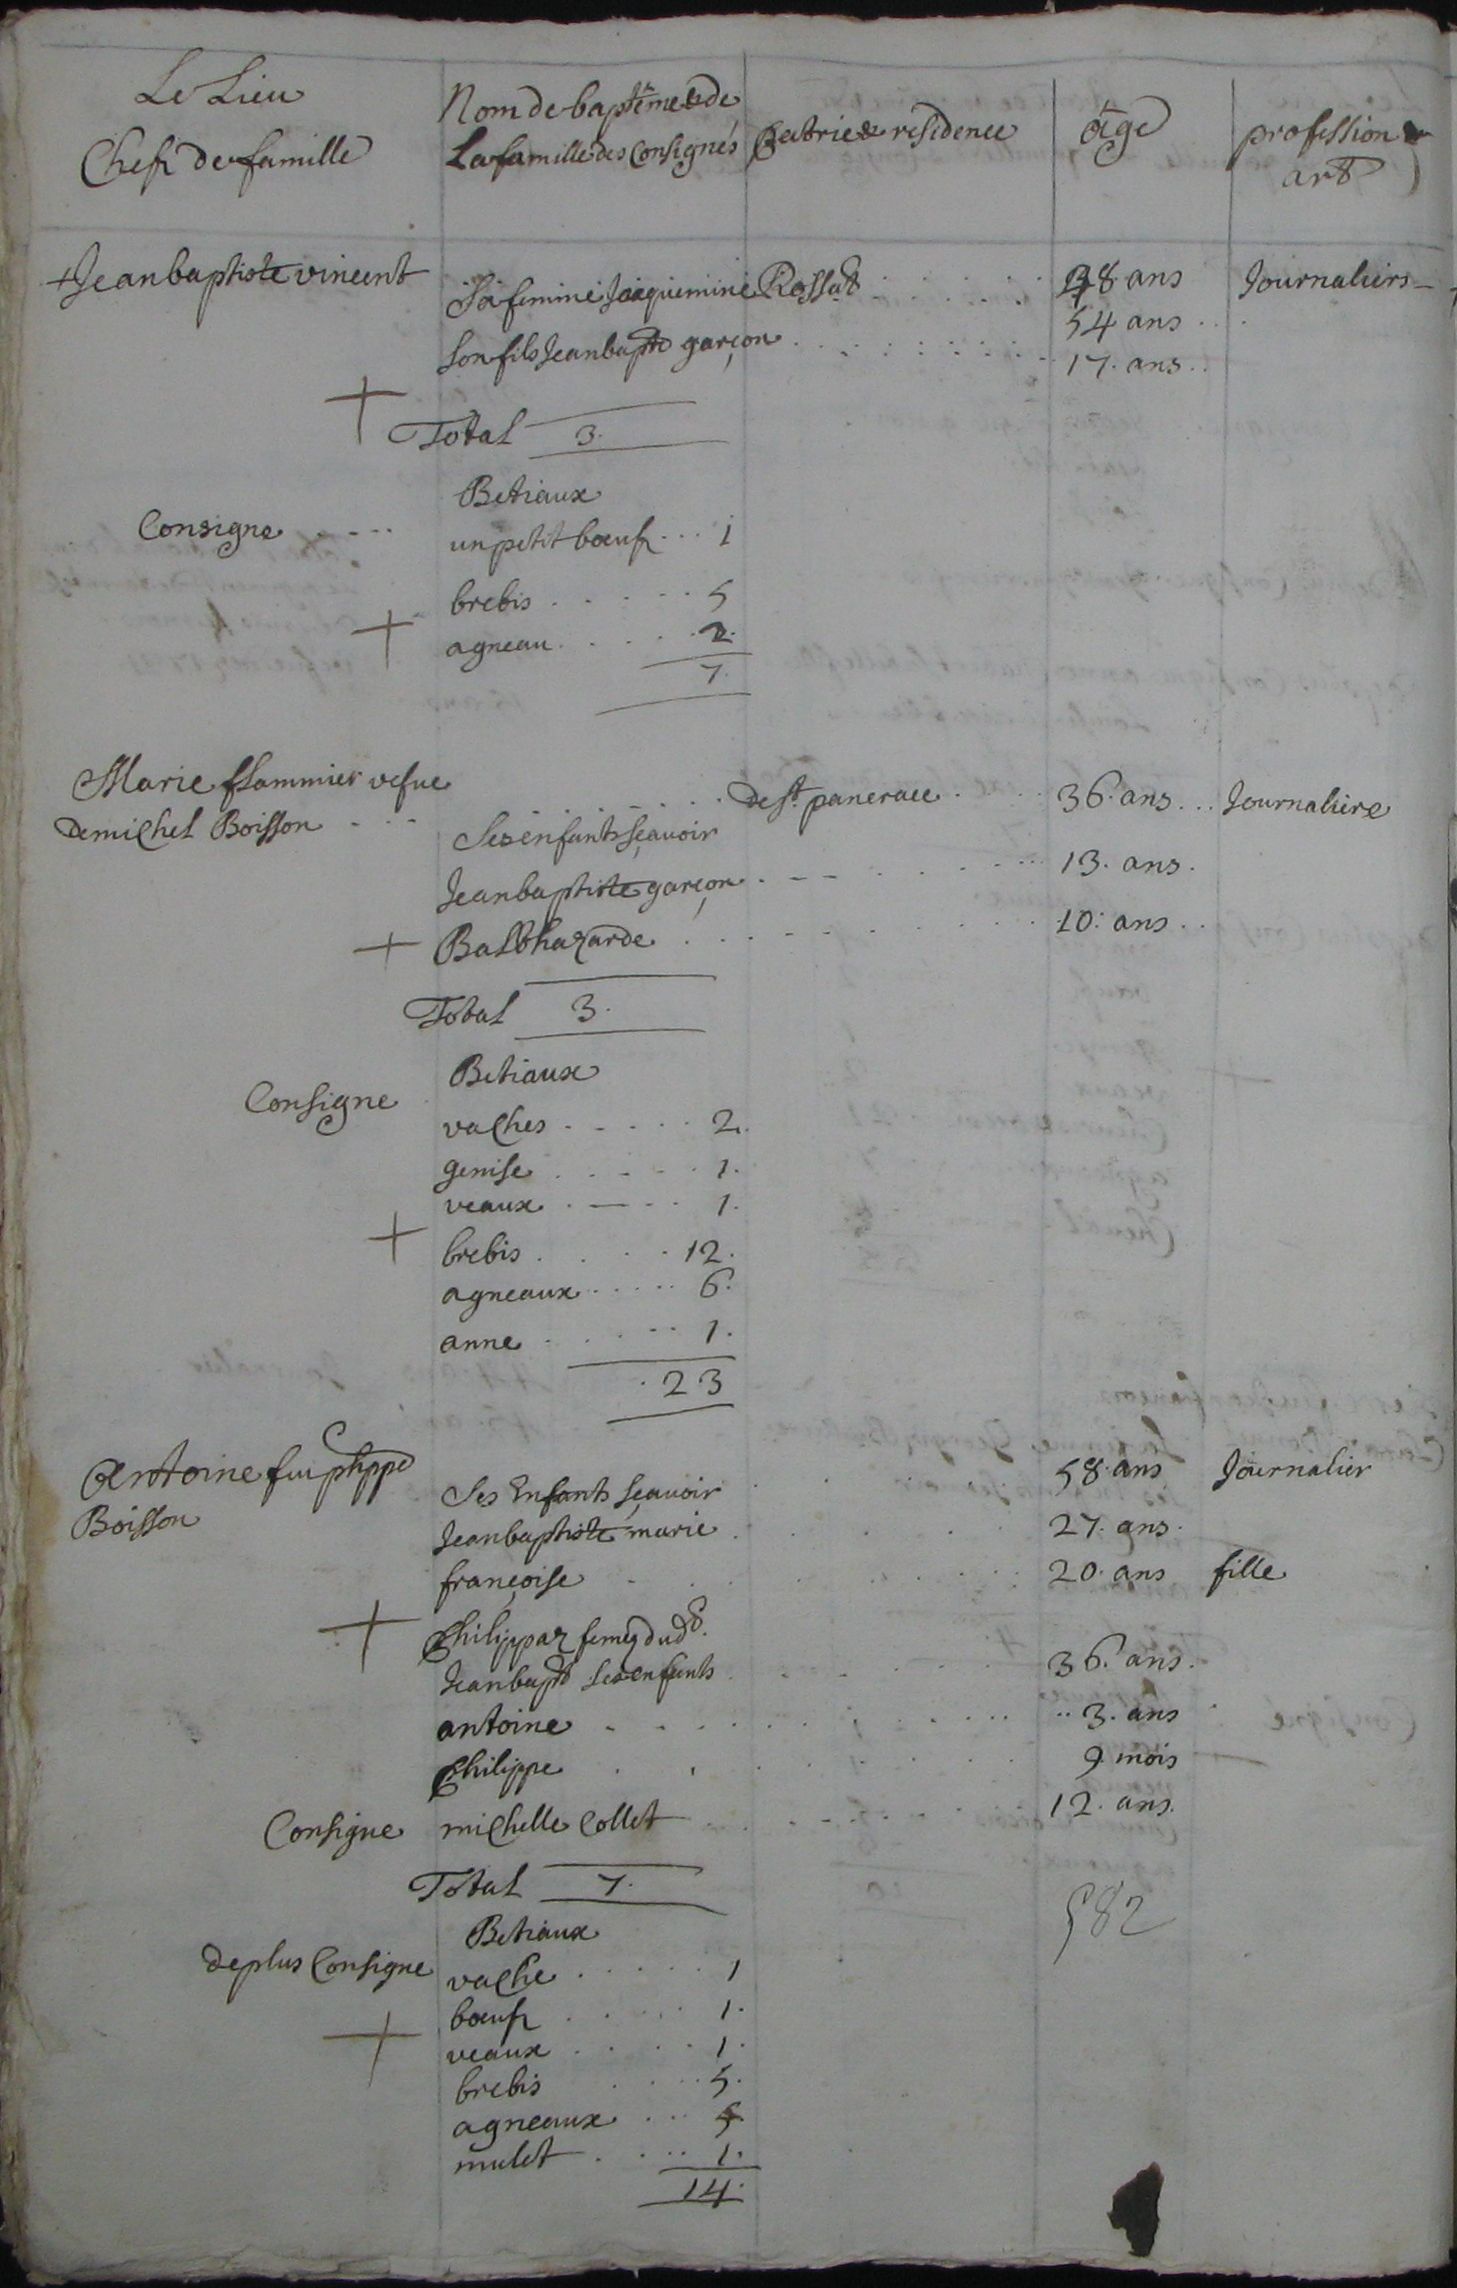 Le Lieu
Chefs de famille
Nom de baptême & de
La famille des Consignés
Patrie & residence
âge
profession &
art
+ Jean baptiste vincent
38 ans Journaliers
Sa femme Jaquemine Rossat 54 ans
Son fils Jean bapte garçon 17. ans
Total 3.
Betiaux
Consigne un petit bœuf 1
brebis 5
agneau 2.
7.
Marie flammier vefue
de st. pancrace 36. ans Journaliere
De michel Boisson
Ses enfants sçauoir
Jean baptiste garçon 13. ans.
Balthazarde 10. ans
Total 3.
Betiaux
Consigne
vaches 2.
genise 1.
veaux 1.
brebis 12.
agneaux 6.
anne 1.
23
Antoine feu phppe
58. ans Journalier
Boisson
Ses Enfants sçauoir
Jean baptiste marié 27. ans.
françoise 20. ans fille
Philippaz feme dudt.
Jean bapt ses enfants 36. ans.
antoine 3. ans
Philippe 9 mois
Consigne michelle Collet 12. ans.
Total 7.
582
Betiaux
de plus Consigne
vache 1
bœuf 1.
veaux 1.
brebis 5.
agneaux 5.
mulet 1.
14.